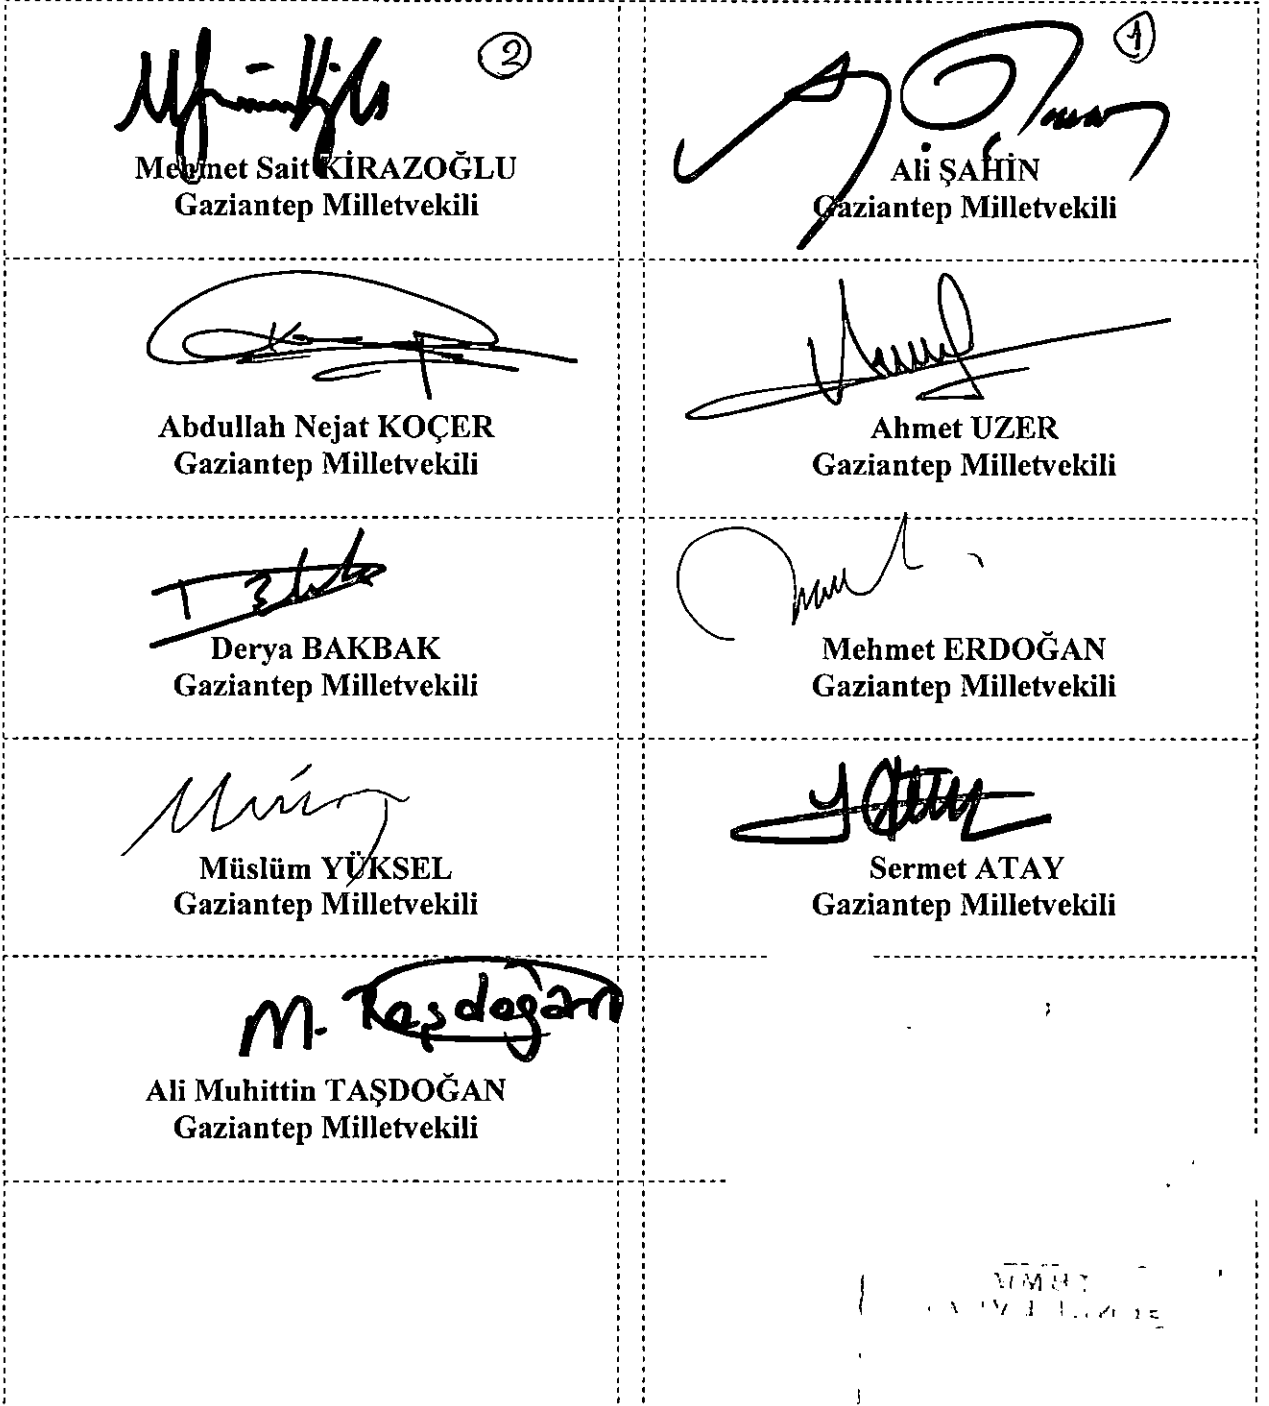 2
Mehmet Sait KİRAZOĞLU
Gaziantep Milletvekili
1
Ali ŞAHİN
Gaziantep Milletvekili
Abdullah Nejat KOÇER
Gaziantep Milletvekili
Ahmet UZER
Gaziantep Milletvekili
Derya BAKBAK
Gaziantep Milletvekili
Mehmet ERDOĞAN
Gaziantep Milletvekili
Müslüm YÜKSEL
Gaziantep Milletvekili
Sermet ATAY
Gaziantep Milletvekili
M. Taşdoğan
Ali Muhittin TAŞDOĞAN
Gaziantep Milletvekili